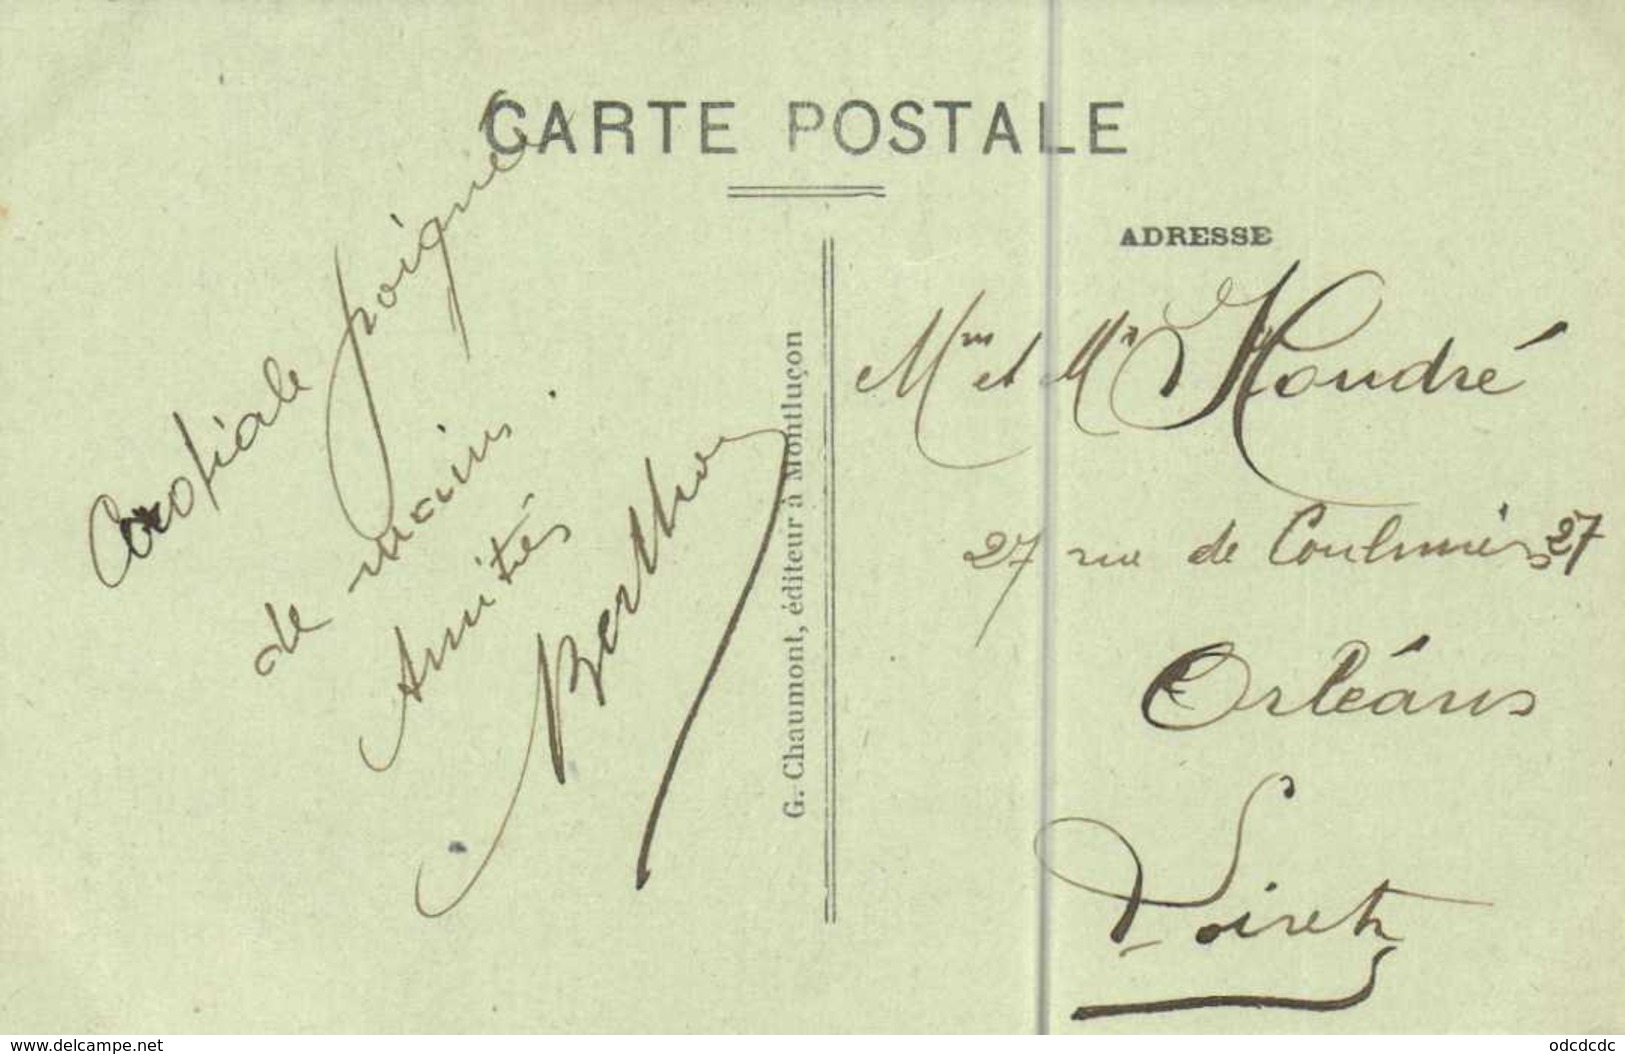 CARTE POSTALE
Cordiale poignée
de mains.
Amitiés
Berthe
G. Chaumont, éditeur à Montluçon
ADRESSE
Mme et Mr Houdré
27 rue de Coulmiers 27
Orléans
Loiret
www.delcampe.net
odcdcdc